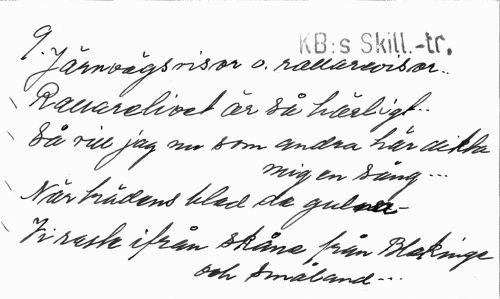 9.
KB:s Skill.-tr.
Järnvägsvisor o. rallarevisor..
Rallarelivet är så härligt..
Så vill jag nu som andra här dikta
mig en sång...
När trädens blad de gulner-
Vi reste ifrån skåne från Blekinge
och småland...